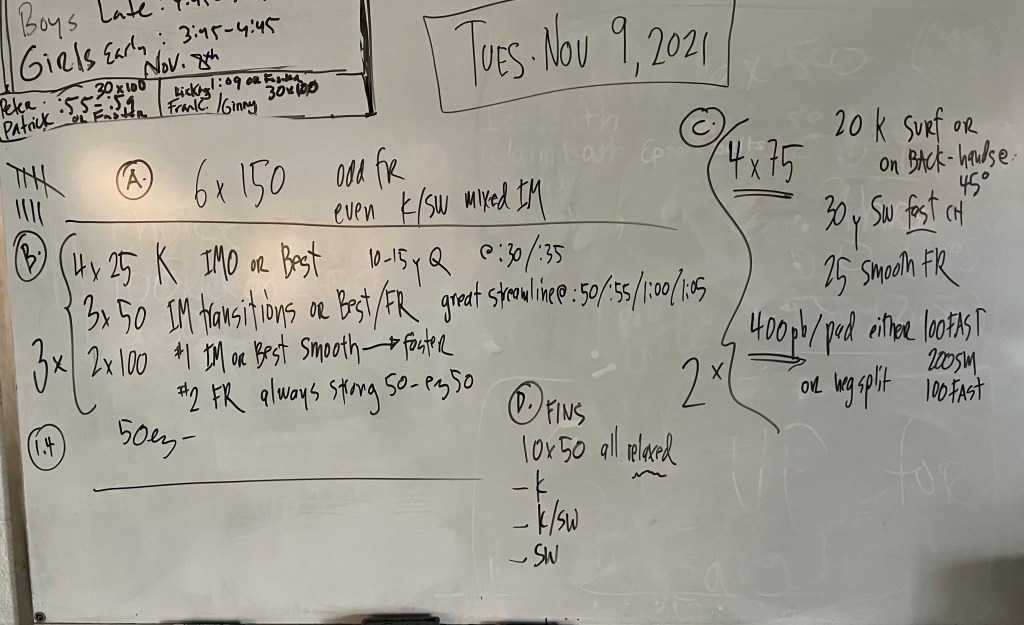 Boys Late:
Girls Early: 3:45-4:45
Nov. 8th
30x100
Peter: :55-:59
Patrick or Faster
:09 or Faster
30x100
Frank/Ginny
TUES. NOV 9, 2021
A. 6 x 150 odd FR
even K/SW mixed IM
B. 3x
4 x 25 K IMO or Best 10-15 y Q @:30/:35
3x 50 IM transitions or Best/FR great streamline@:50/:55/1:00/1:05
2x100 #1 IM or Best smooth → faster
#2 FR always strong 50-ez 50
1.4 50ez -
C. 2x
4 x 75 20 K surf or
on BACK-hands@
45°
30 y SW fast CH
25 smooth FR
400 pb/pad either 100 FAST
200 SM
100 FAST
or negsplit
D. FINS
10x50 all relaxed
- K
- K/SW
- SW